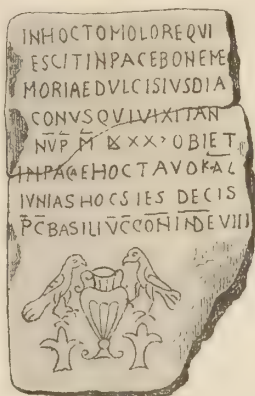 INHOCTOMOLOREQVI
ESCITINPACEBONEME
MORIAEDVLCISIVSDIA
CONVSQVIVIXITAN
NVP M XX OBIET
INPACEHOCTAVOKAL
IVNIASHOCSIES DECIS
PC BASILI VCCONINDEVIII